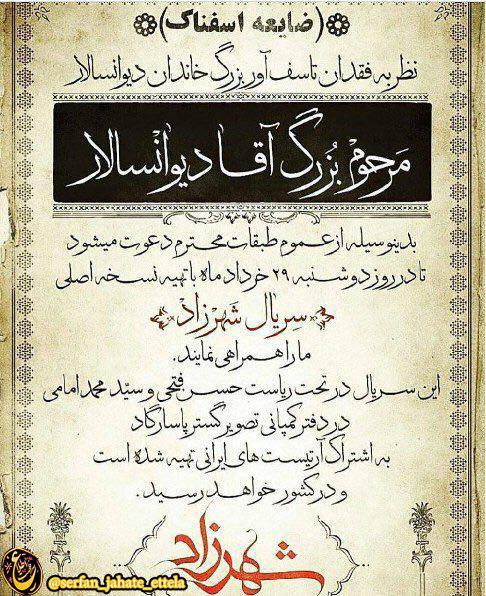 (ضایعه اسفناک)
نظر به فقدان تاسف آور بزرگ خاندان دیوانسالار
مرحوم بزرگ آقا دیوانسالار
بدینوسیله از عموم طبقات محترم دعوت میشود
تا در روز دوشنبه ۲۹ خرداد ماه با تهیه نسخه اصلی
سریال شهرزاد
ما را همراهی نمایند.
این سریال در تحت ریاست حسن فتحی و سید محمد امامی
در دفتر کمپانی تصویر گستر پاسارگاد
به اشتراک آرتیست های ایرانی تهیه شده است
و در کشور خواهد رسید.
شهرزاد
@serfan_jahate_ettela